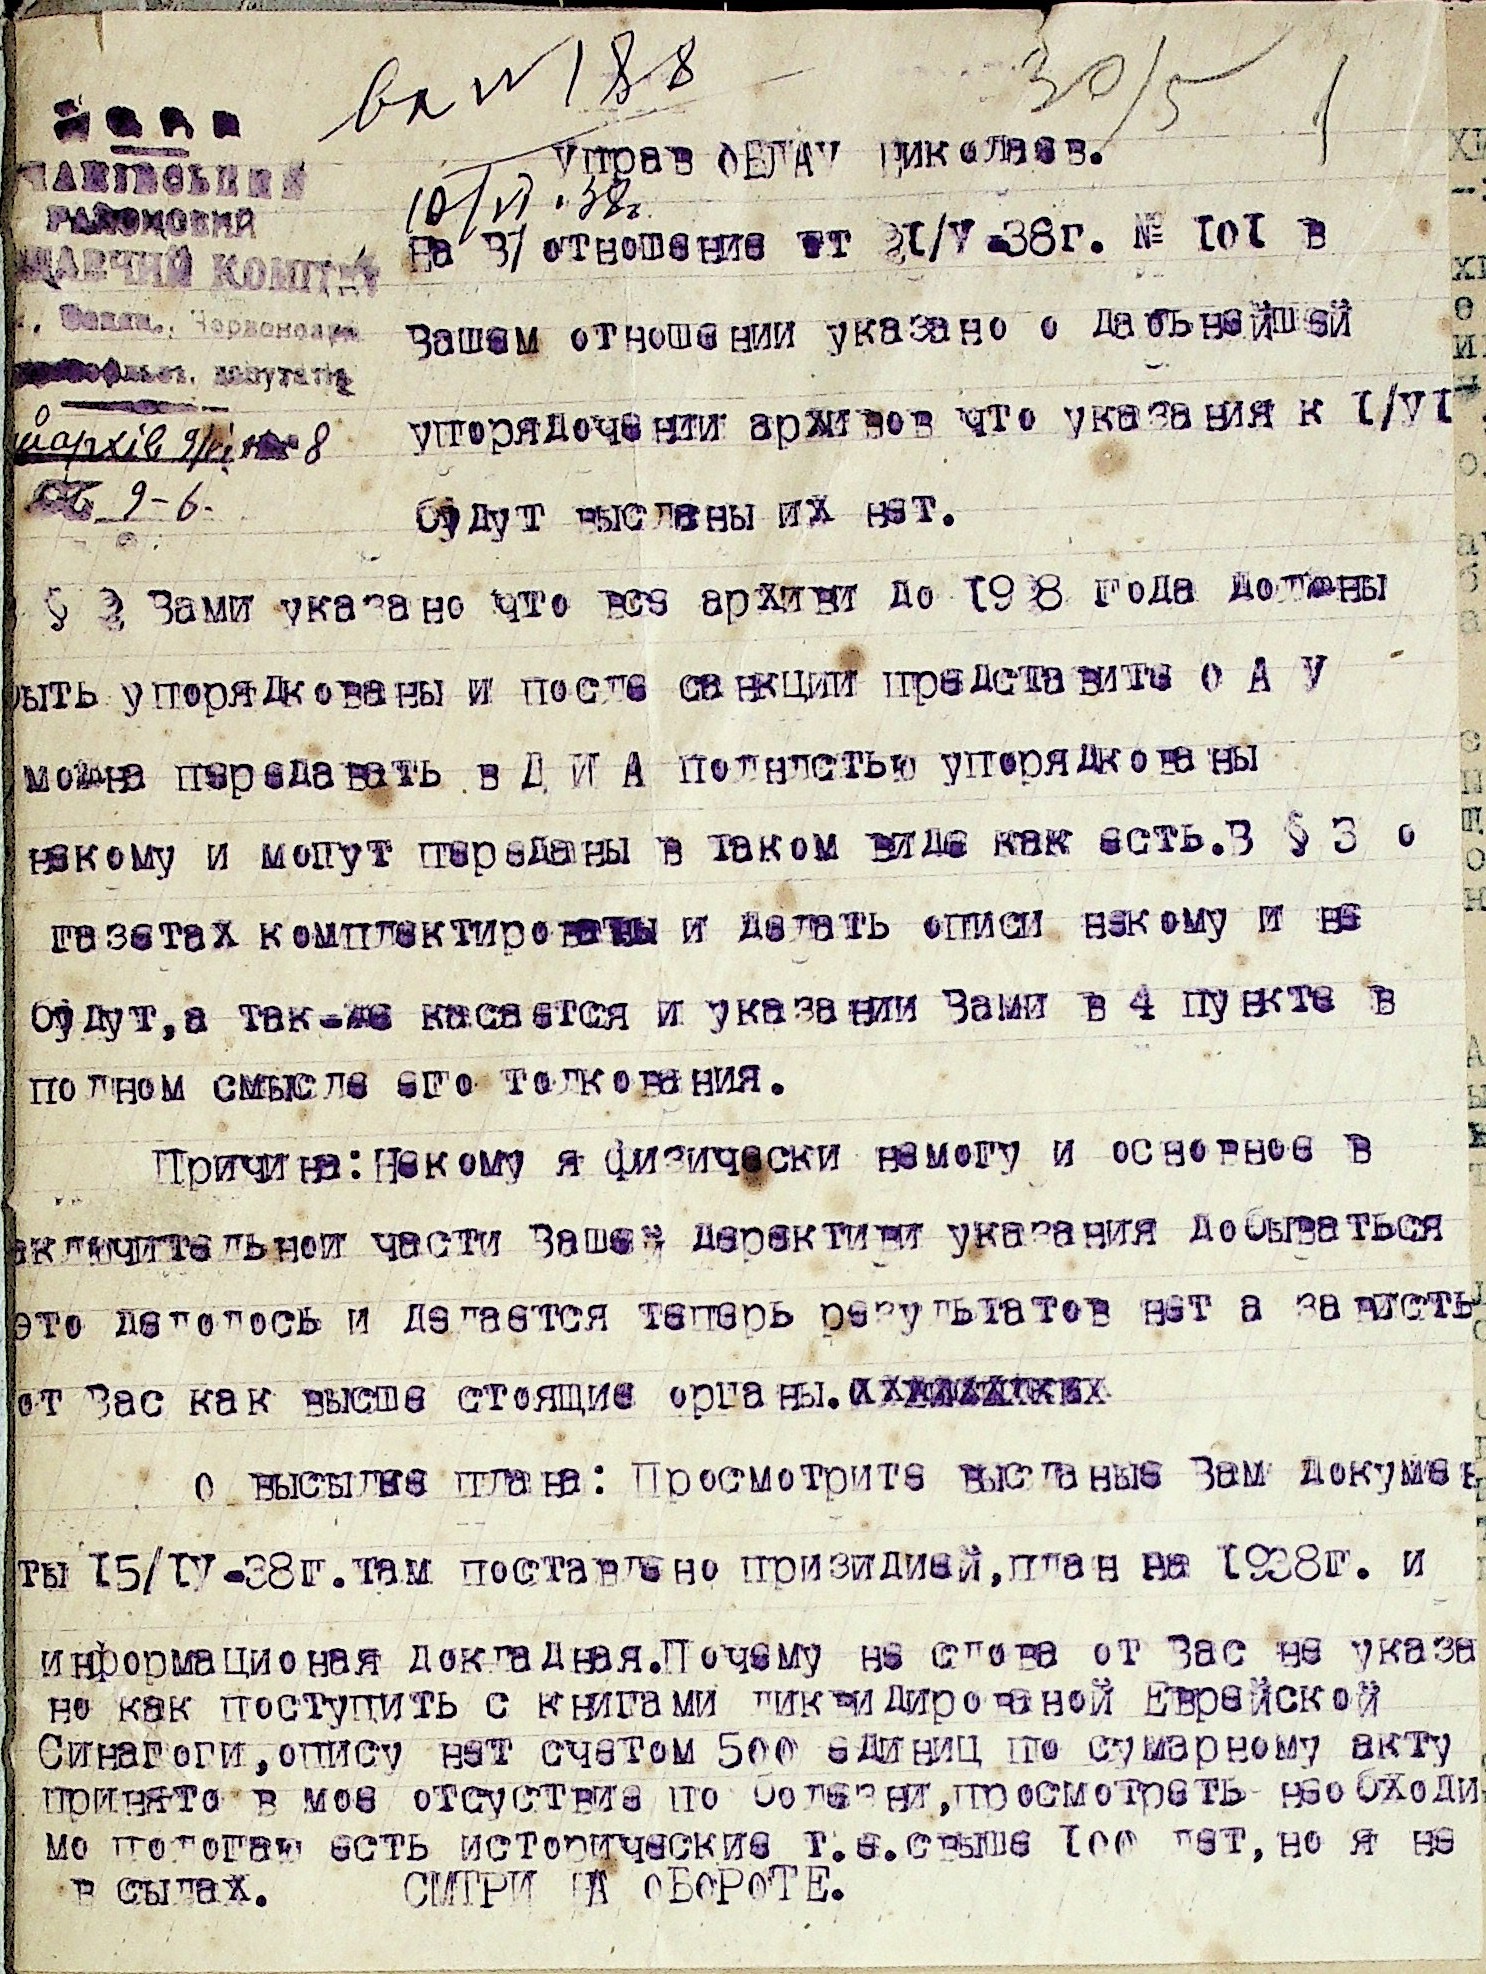 вх № 188
30/5
1
Управ ОБЛАУ Николаев.
10/VI.38г.
РАЙОНОВИЙ
КОМІТЕТ
Червоноарм
депутатів
архів 9/VI 8
9-6.
На В/ отношение от 21/V-38г. № 101 в
Вашем отношении указано о дальнейшей
упорядочении архивов что указания к 1/VI
будут высланы их нет.
§ 2 Вами указано что все архиви до 1938 года должны
быть упорядкованы и после санкции представите О А У
можна передавать в Д И А полнлстью упорядкованы
некому и могут переданы в таком виде как есть.В § 3 о
газетах комплектированы и делать описи некому и не
будут,а так-же касается и указании Вами в 4 пункте в
полном смысле его толкования.
Причина:Некому я физически немогу и основное в
аключительнои части Вашей дерективи указания добываться
это делолось и делается теперь результатов нет а зависть
от Вас как высше стоящие органы.
О высылке плана: Просмотрите высланые Вам докумен
ты 15/IV-38г.там поставлено призидией,план на 1938г. и
информационая докладная.Почему не слова от Вас не указа
но как поступить с книгами ликвидированой Еврейской
Синагоги,опису нет счетом 500 единиц по сумарному акту
принято в мое отсуствие по болезни,просмотреть необходи
мо пологаю есть исторические т.е.свыше 100 лет,но я не
в сылах. СМТРИ НА ОБОРОТЕ.